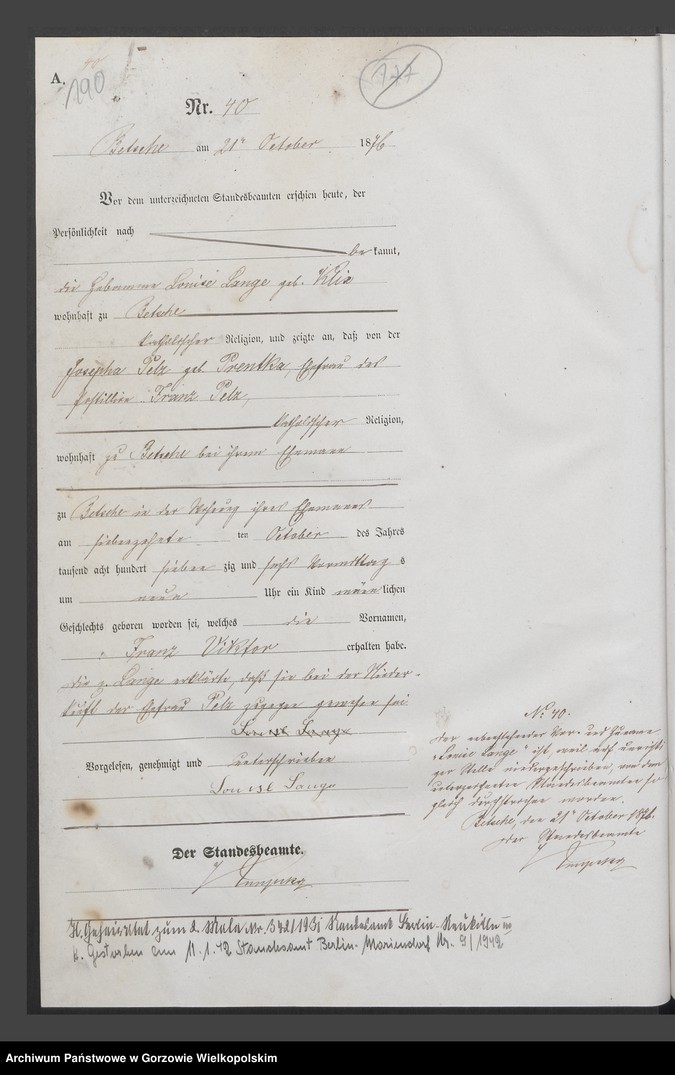 A.
190
177
Nr. 40
Betsche am 21ten October 1876
Vor dem unterzeichneten Standesbeamten erschien heute, der
Persönlichkeit nach
bekannt,
die Hebamme Louise Lange geb. Klix
wohnhaft zu Betsche
katholischer Religion, und zeigte an, daß von der
Josepha Pelz geb. Prentka, Ehefrau des
Postillion Franz Pelz,
katholischer Religion,
wohnhaft zu Betsche bei ihrem Ehemann
zu Betsche in der Wohnung ihres Ehemannes
am siebenzehnten ten October des Jahres
tausend acht hundert sieben zig und sechs Vormittag s
um neun Uhr ein Kind männlichen
Geschlechts geboren worden sei, welches die Vornamen,
Franz Viktor erhalten habe.
die p. Lange erklärte, daß sie bei der Nieder-
kunft der Ehefrau Pelz zugegen gewesen sei
Louise Lange
Vorgelesen, genehmigt und unterschrieben
Louise Lange
Der Standesbeamte.
No 40.
Der nebenstehende Vor- und Zuname
"Louise Lange" ist, weil auf unrichti-
ger Stelle niedergeschrieben, von dem
unterzeichneten Standesbeamten so-
gleich durchstrichen worden.
Betsche, den 21ten October 1876.
Der Standesbeamte
Geheiratet zum 2. Male Nr. 342/1931 Standesamt Berlin-Neukölln
Gestorben am 11.1.42 Standesamt Berlin-Mariendorf Nr. 9/1942
Archiwum Państwowe w Gorzowie Wielkopolskim